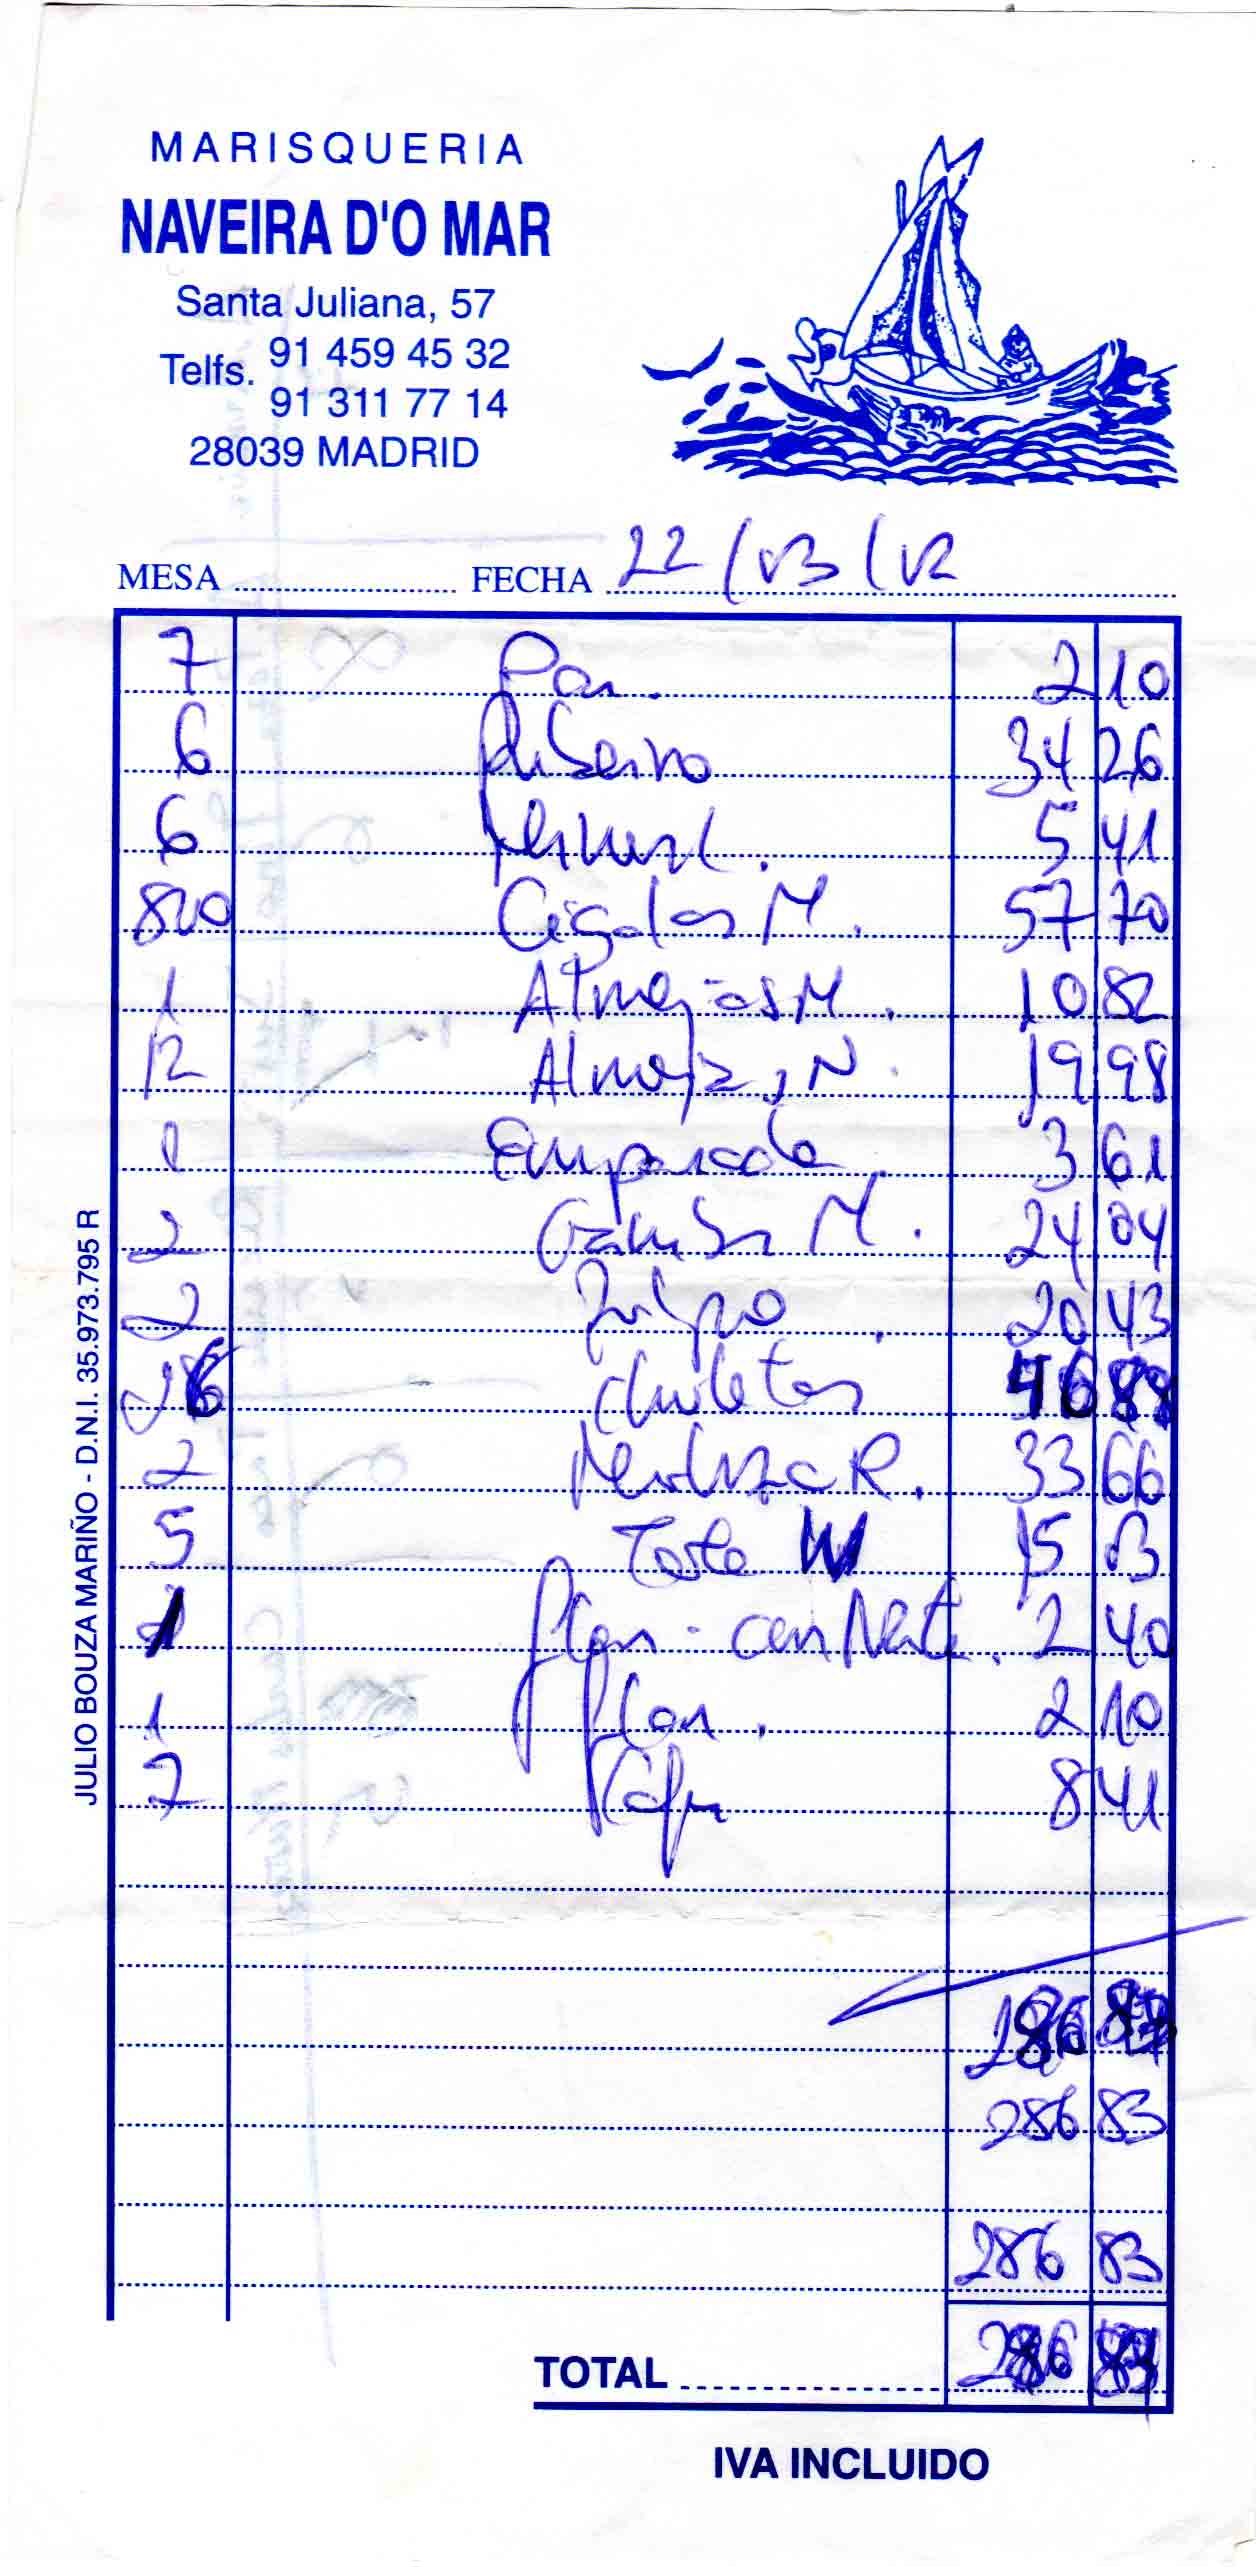 MARISQUERIA
NAVEIRA D'O MAR
Santa Juliana, 57
Telfs. 91 459 45 32
91 311 77 14
28039 MADRID
MESA FECHA 22/03/02
7 Pan. 2 10
6 Ribeiro 34 26
6 5 41
800 Cigalas M. 57 70
1 Almejas M. 10 82
12 Almeja, N. 19 98
1 Empanada. 3 61
2 Gambas M. 24 04
2 Pulpo. 20 43
6 chuletas 46 88
2 Merluza R. 33 66
5 Tarta W 15 03
1 flan - con Nata. 2 40
1 flan. 2 10
7 Cafes 8 41
286
286 83
286 83
TOTAL 286
IVA INCLUIDO
JULIO BOUZA MARIÑO - D.N.I. 35.973.795 R